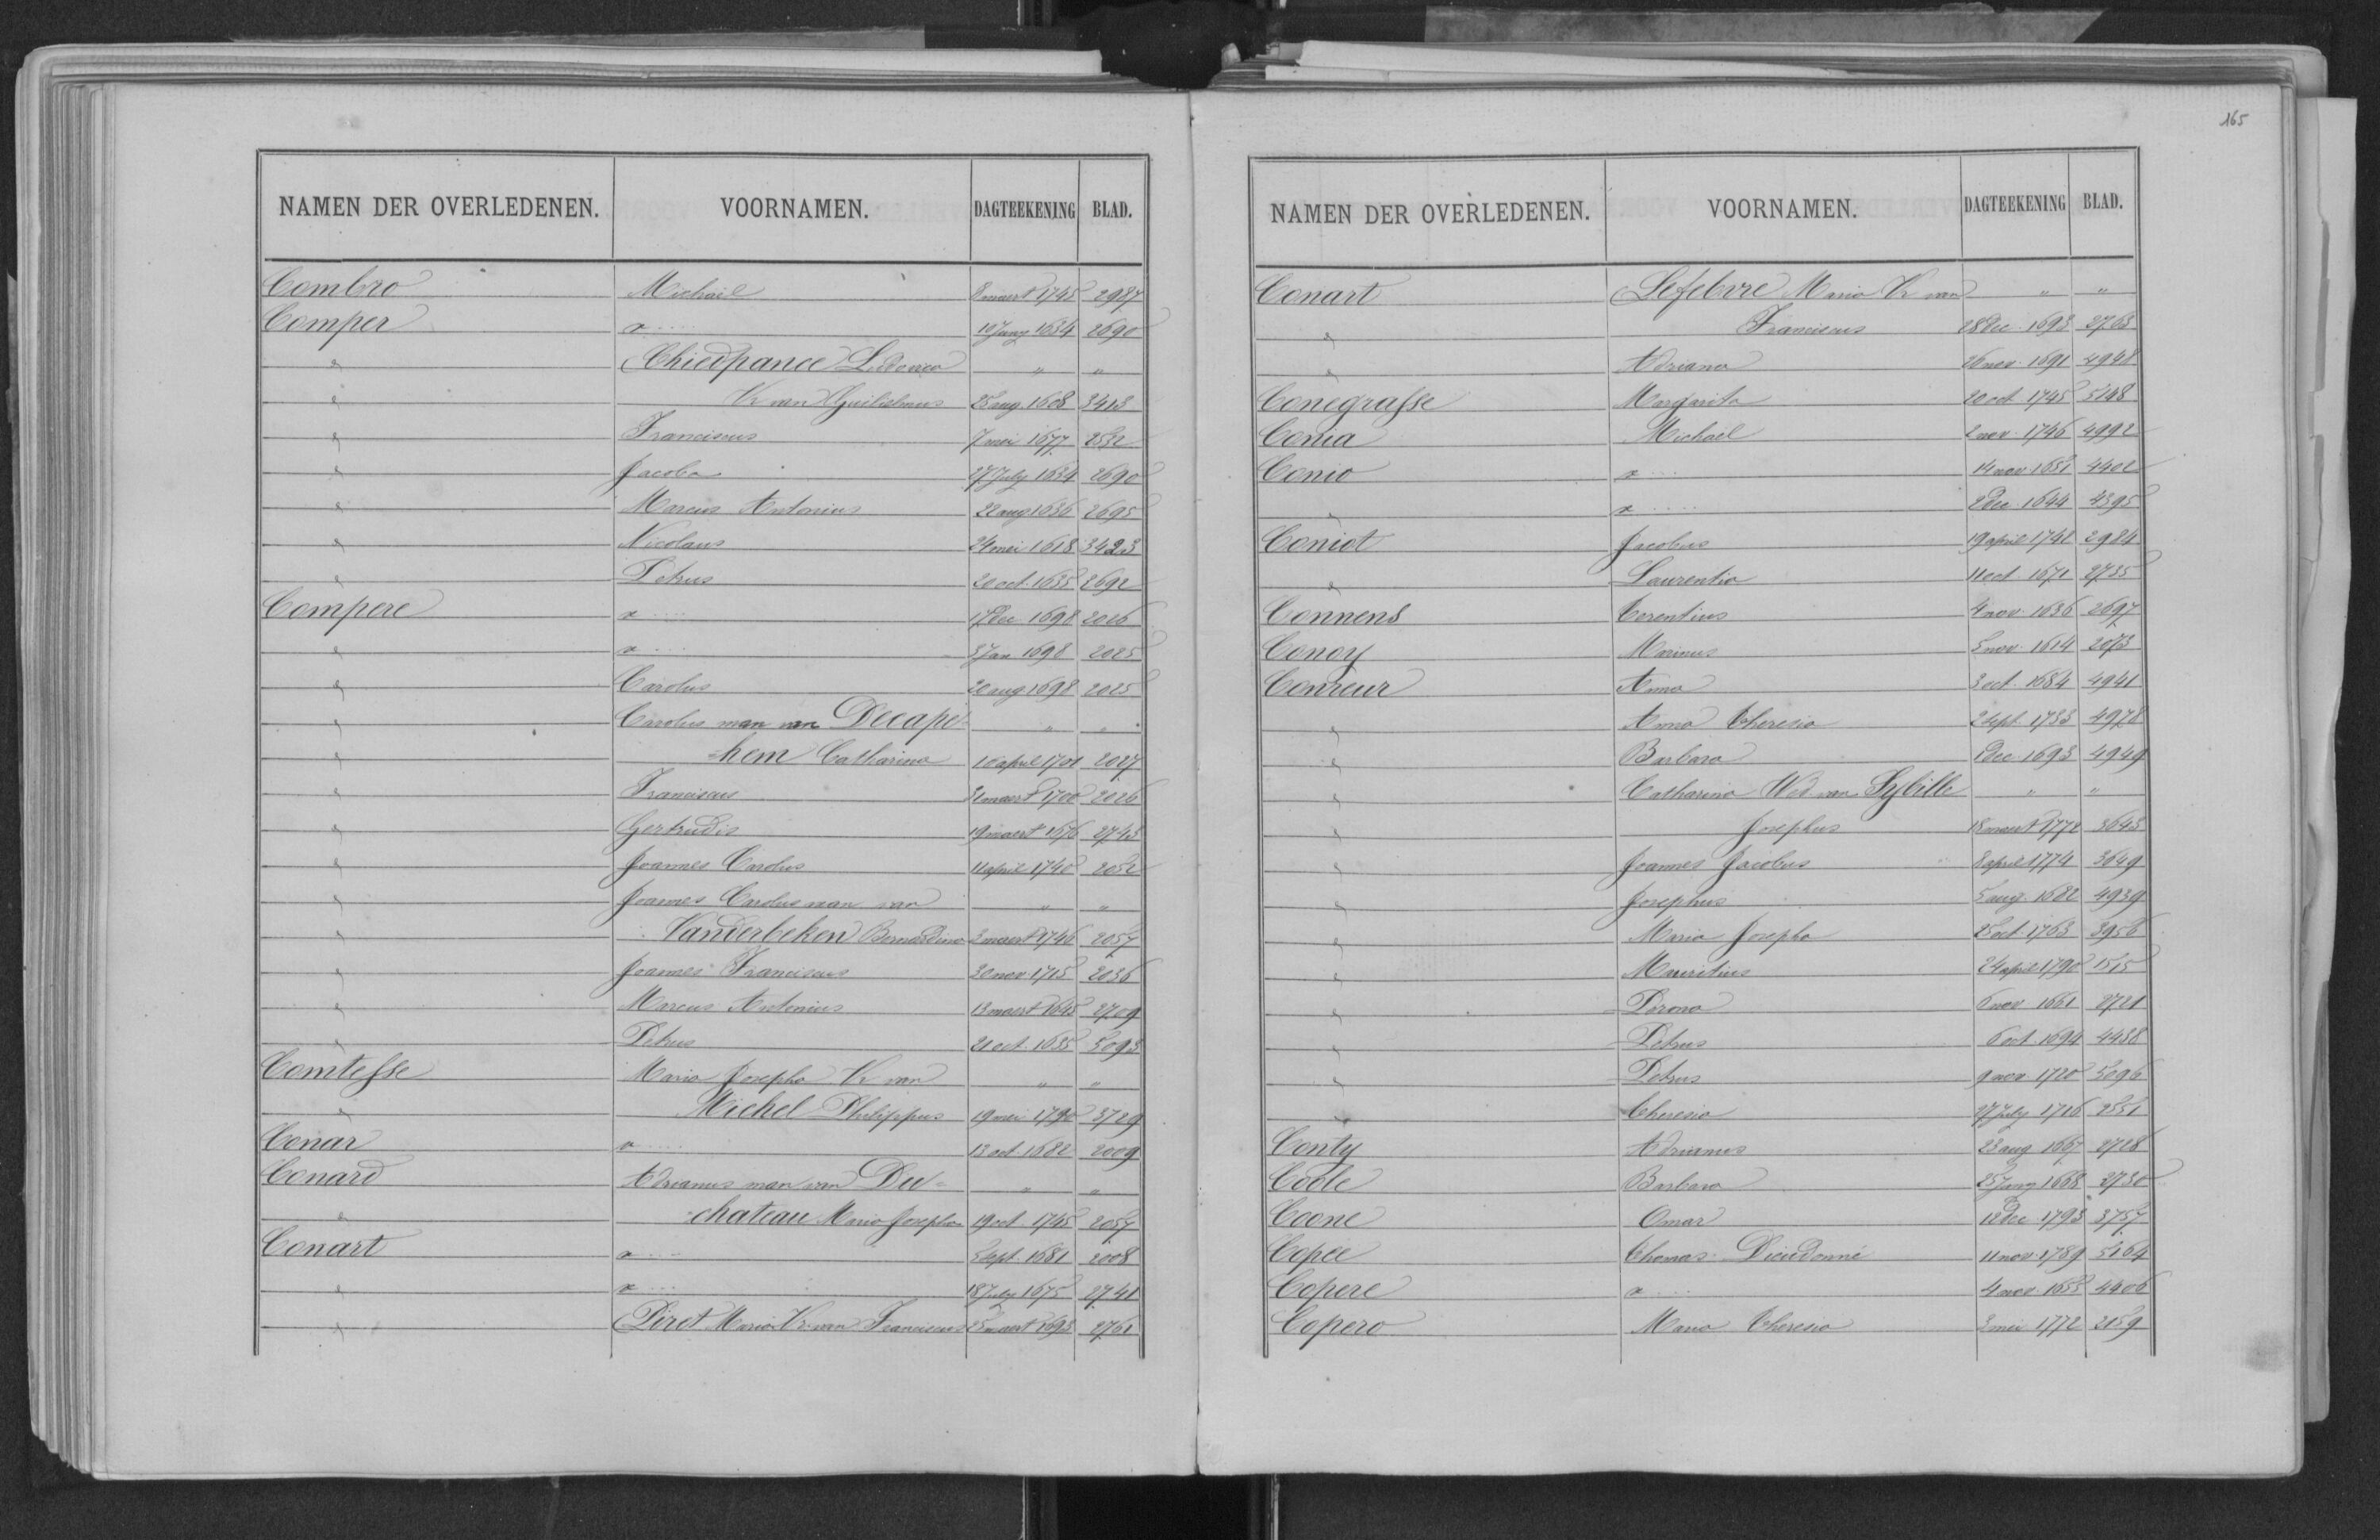 165
NAMEN DER OVERLEDENEN. VOORNAMEN. DAGTEEKENING BLAD.
Combro Michael 8 maert 1745 2987
Comper x .... 10 Juny 1634 2690
" Chiedpance Ludovica " "
" Vr van Guilielmus 25 aug. 1608 3413
" Franciscus 7 mei 1677 2532
" Jacoba 27 July 1634 2690
" Marcus Antonius 22 aug 1636 2695
" Nicolaus 24 mei 1618 3423
" Petrus 20 oct. 1635 2692
Compere x .... 17 Dec 1698 2026
" x .... 3 Jan 1698 2025
" Carolus 20 aug 1698 2025
" Carolus man van Decape- " "
" -hem Catharina 10 april 1701 2027
" Franciscus 31 maert 1700 2026
" Gertrudis 19 maert 1676 2743
" Joannes Carolus 11 april 1740 2052
" Joannes Carolus man van " "
" Vanderbeken Bernardina 3 maert 1746 2057
" Joannes Franciscus 30 nov. 1715 2036
" Marcus Antonius 13 maert 1645 2709
" Petrus 21 oct. 1635 5093
Comtesse Maria Josepha Vr van " "
" Michel Philippus 19 mei 1790 3729
Conar x .... 13 oct. 1682 2009
Conard Adrianus man van Du- " "
" -chateau Maria Josepha 19 oct. 1745 2057
Conart x .... 5 sept. 1681 2008
" x .... 18 July 1675 2741
" Pirot Maria Vr van Franciscus 25 maert 1693 2761
NAMEN DER OVERLEDENEN. VOORNAMEN. DAGTEEKENING BLAD.
Conart Lefebvre Maria Vr van " "
" Franciscus 28 Dec. 1693 2763
" Adriana 26 nov. 1691 4948
Conegrasse Margarita 20 oct. 1745 5148
Conia Michael 2 nov. 1746 4992
Conio x .... 14 nov. 1651 4402
" x .... 2 Dec. 1644 4395
Coniot Jacobus 19 april 1741 2984
" Laurentia 11 oct. 1671 2735
Connens Corentius 4 nov. 1636 2697
Conoy Marinus 5 nov. 1614 2073
Conreur Anna 3 oct. 1684 4941
" Anna Theresia 2 sept. 1733 4978
" Barbara 1 Dec. 1693 4949
" Catharina Wed. van Sybille " "
" Josephus 18 maert 1772 3643
" Joannes Jacobus 8 april 1774 3649
" Josephus 5 aug. 1682 4939
" Maria Josepha 25 oct. 1763 3956
" Mauritius 24 april 1790 1515
" Perona 6 nov 1661 2721
" Petrus 6 oct. 1694 4438
" Petrus 9 nov 1720 5096
" Theresia 27 July 1716 2551
Conty Adrianus 23 aug 1667 2728
Coole Barbara 25 Juny 1668 2730
Coone Omar 12 Dec 1793 3757
Copée Thomas Dieudonné 11 nov. 1789 5164
Copere x .... 4 nov. 1655 4406
Copero Maria Theresia 3 mei 1772 2159